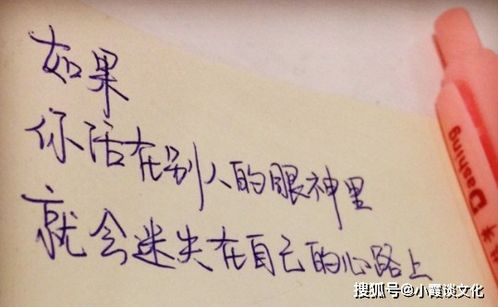 如果
你活在别人的眼神里
就会迷失在自己的心路上
Dashing
搜狐号@小霞谈文化